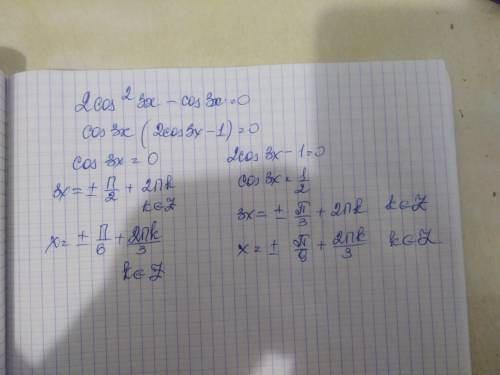 2cos² 3x - cos3x = 0
cos3x (2cos3x - 1) = 0
cos 3x = 0
3x = ± П/2 + 2Пk
k∈Z
x = ± П/6 + 2Пk/3
k∈Z
2cos3x - 1 = 0
cos3x = 1/2
3x = ± π/3 + 2Пk k∈Z
x = ± π/9 + 2Пk/3 k∈Z